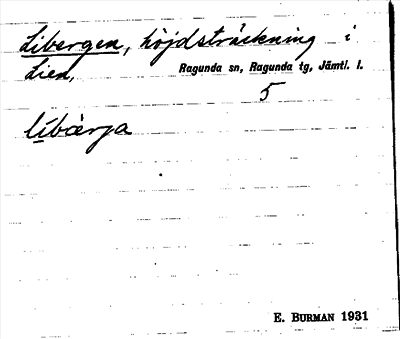 Libergen, höjdsträckning i
Lien, Ragunda sn, Ragunda tg, Jämtl. l.
5
líbærja
E. BURMAN 1931